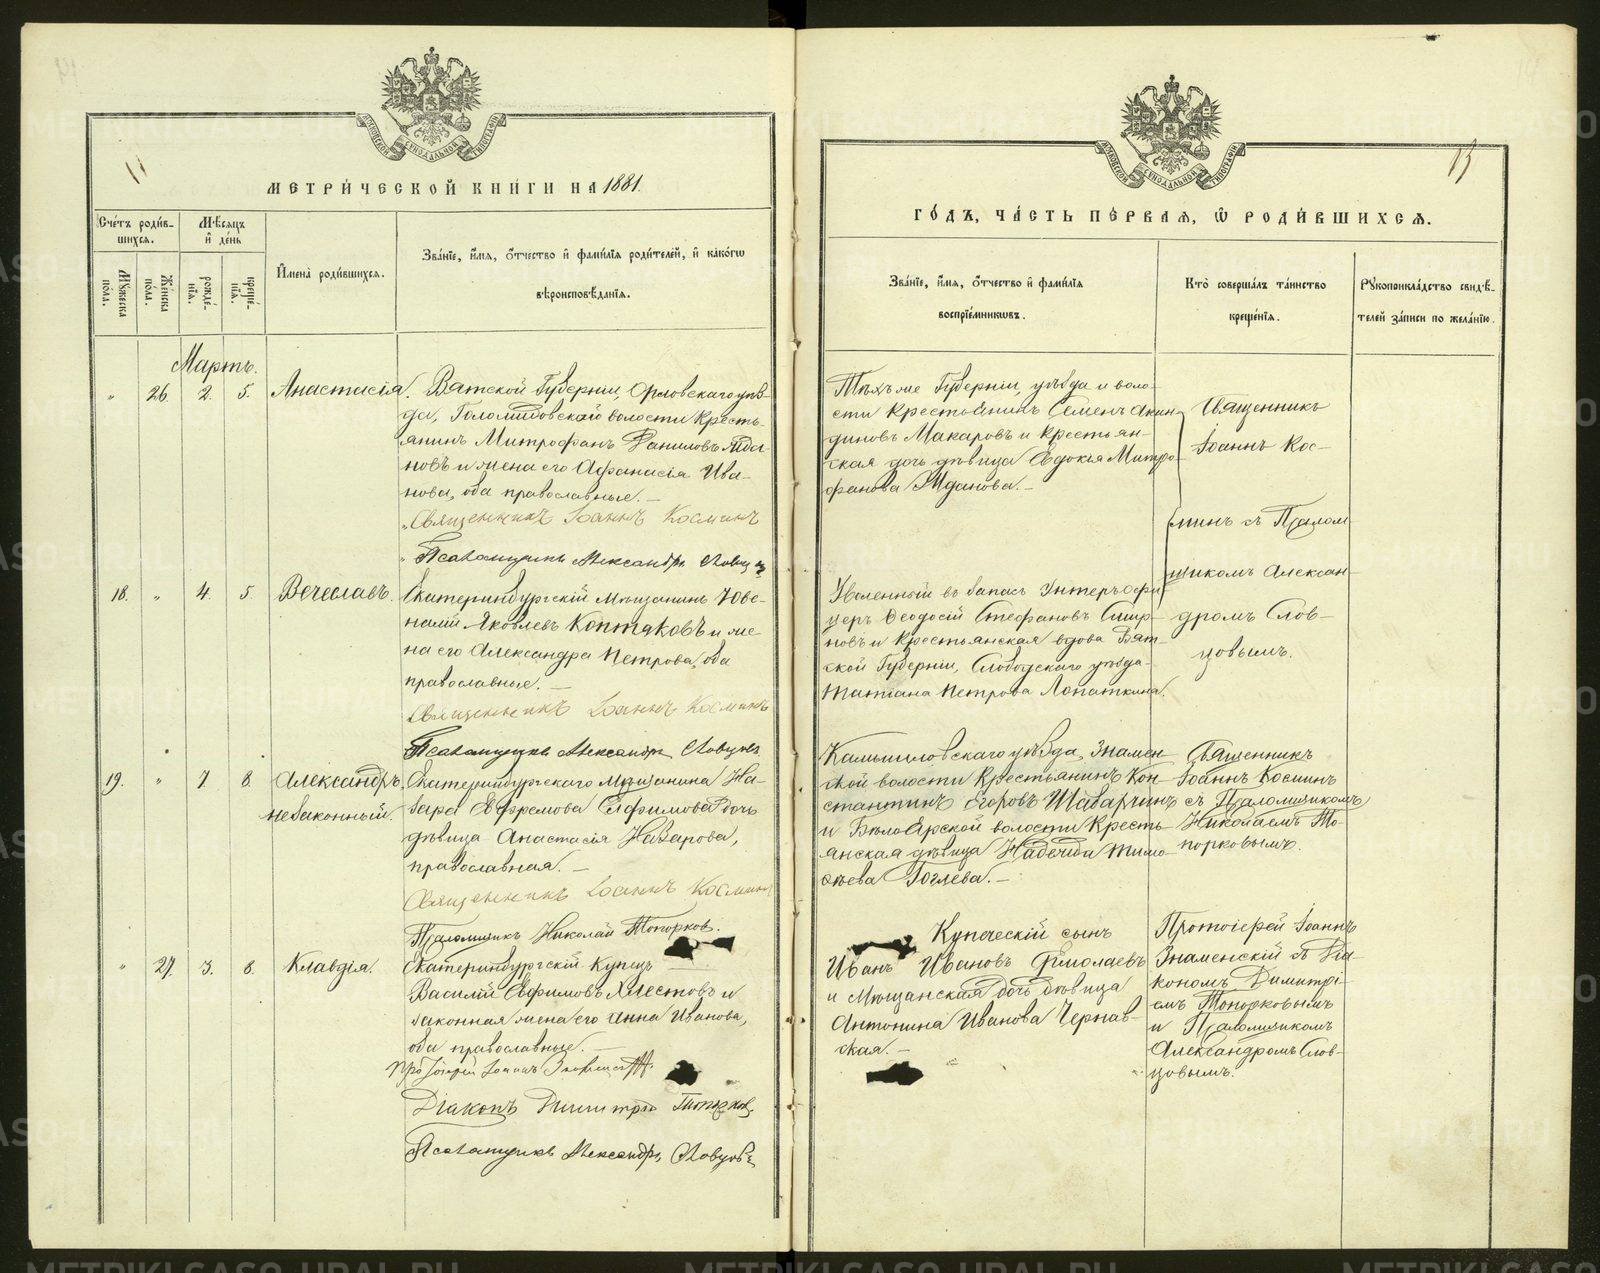 МЕТРИЧЕСКОЙ КНИГИ НА 1881.
Счетъ родив-
шихся.
Мѣсяцъ
и день
Мужеска
пола.
Женска
пола.
рожде-
нія.
креще-
нія.
Имена родившихся.
Званіе, имя, отчество и фамилія родителей, и какогѡ
вѣроисповѣданія.
Мартъ.
" 26. 2. 5. Анастасія.
Вятской Губерніи, Орловскаго уѣз-
да, Голомидовской волости Кресть-
янинъ Митрофанъ Даниловъ Жда-
новъ и жена его Афанасія Ива-
нова, оба православные. —
Священникъ Іоаннъ Косминъ
Псаломщикъ Александръ Словцовъ
18. " 4. 5. Вечеславъ.
Екатеринбургскій мѣщанинъ Юве-
налій Яковлевъ Коптяковъ и же-
на его Александра Петрова, оба
православные. —
Священникъ Іоаннъ Косминъ
Псаломщикъ Александръ Словцовъ
19. " 7 8. Александръ,
незаконный.
Екатеринбургскаго мѣщанина На-
зара Ефремова Елфимова дочь
дѣвица Анастасія Назарова,
православная. —
Священникъ Іоаннъ Косминъ
Псаломщикъ Николай Топорков.
" 27. 3. 8. Клавдія.
Екатеринбургскій Купецъ
Василій Ефимовъ Хлестовъ и
законная жена его Анна Иванова,
оба православные. —
Протоіерей Іоаннъ Знаменскій.
Діаконъ Димитрій Топорков
Псаломщикъ Александръ Словцовъ
13
ГОДЪ, ЧАСТЬ ПЕРВАЯ, Ѡ РОДИВШИХСЯ.
Званіе, имя, отчество и фамилія
воспріемникѡвъ.
Кто совершалъ таинство
крещенія.
Рукоприкладство свидѣ-
телей записи по желанію.
Тѣхъ же Губерніи, уѣзда и воло-
сти Крестьянинъ Семенъ Акин-
диновъ Макаровъ и крестьян-
ская дочь дѣвица Евдокія Митро-
фанова Жданова. —
Священникъ
Іоаннъ Кос-
минъ съ Псалом-
щикомъ Алексан-
дромъ Слов-
цовымъ.
Уволенный въ запасъ Унтеръ-офи-
церъ Феодосій Стефановъ Смир-
новъ и Крестьянская вдова Вят-
ской Губерніи, Слободскаго уѣзда
Татіана Петрова Лопаткина.
Камышловскаго уѣзда, Знамен-
ской волости Крестьянинъ Кон-
стантинъ Егоровъ Шаварчинъ
и Бѣлоярской волости Кресть-
янская дѣвица Надежда Тимо-
ѳеева Гоглева. —
Священникъ
Іоаннъ Косминъ
съ Псаломщикомъ
Николаемъ То-
порковымъ.
Купеческій сынъ
Иванъ Ивановъ Ермолаевъ
и Мѣщанская дочь дѣвица
Антонина Иванова Чернав-
ская. —
Протоіерей Іоаннъ
Знаменскій съ Діа-
кономъ Димитрі-
емъ Топорковымъ
и Псаломщикомъ
Александромъ Слов-
цовымъ.
METRIKI.GASO-URAL.RU